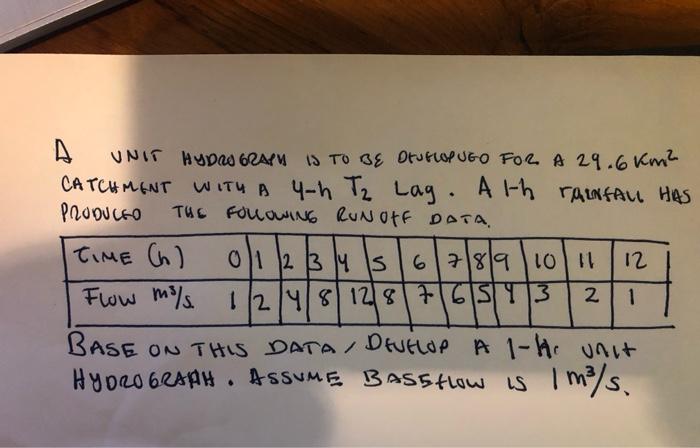 A UNIT HYDROGRAPH IS TO BE DEVELOPUEO FOR A 29.6 Km²
CATCHMENT WITH A 4-h T₂ Lag. A 1-h RAINFALL HAS
PRODUCEO THE FOLLOWING RUNOFF DATA.
TIME (h) 0 1 2 3 4 5 6 7 8 9 10 11 12
FLOW m³/s 1 2 4 8 12 8 7 6 5 4 3 2 1
BASE ON THIS DATA, DEVELOP A 1-Hr UNIT
HYDROGRAPH. ASSUME BASEFLOW IS 1 m³/s.